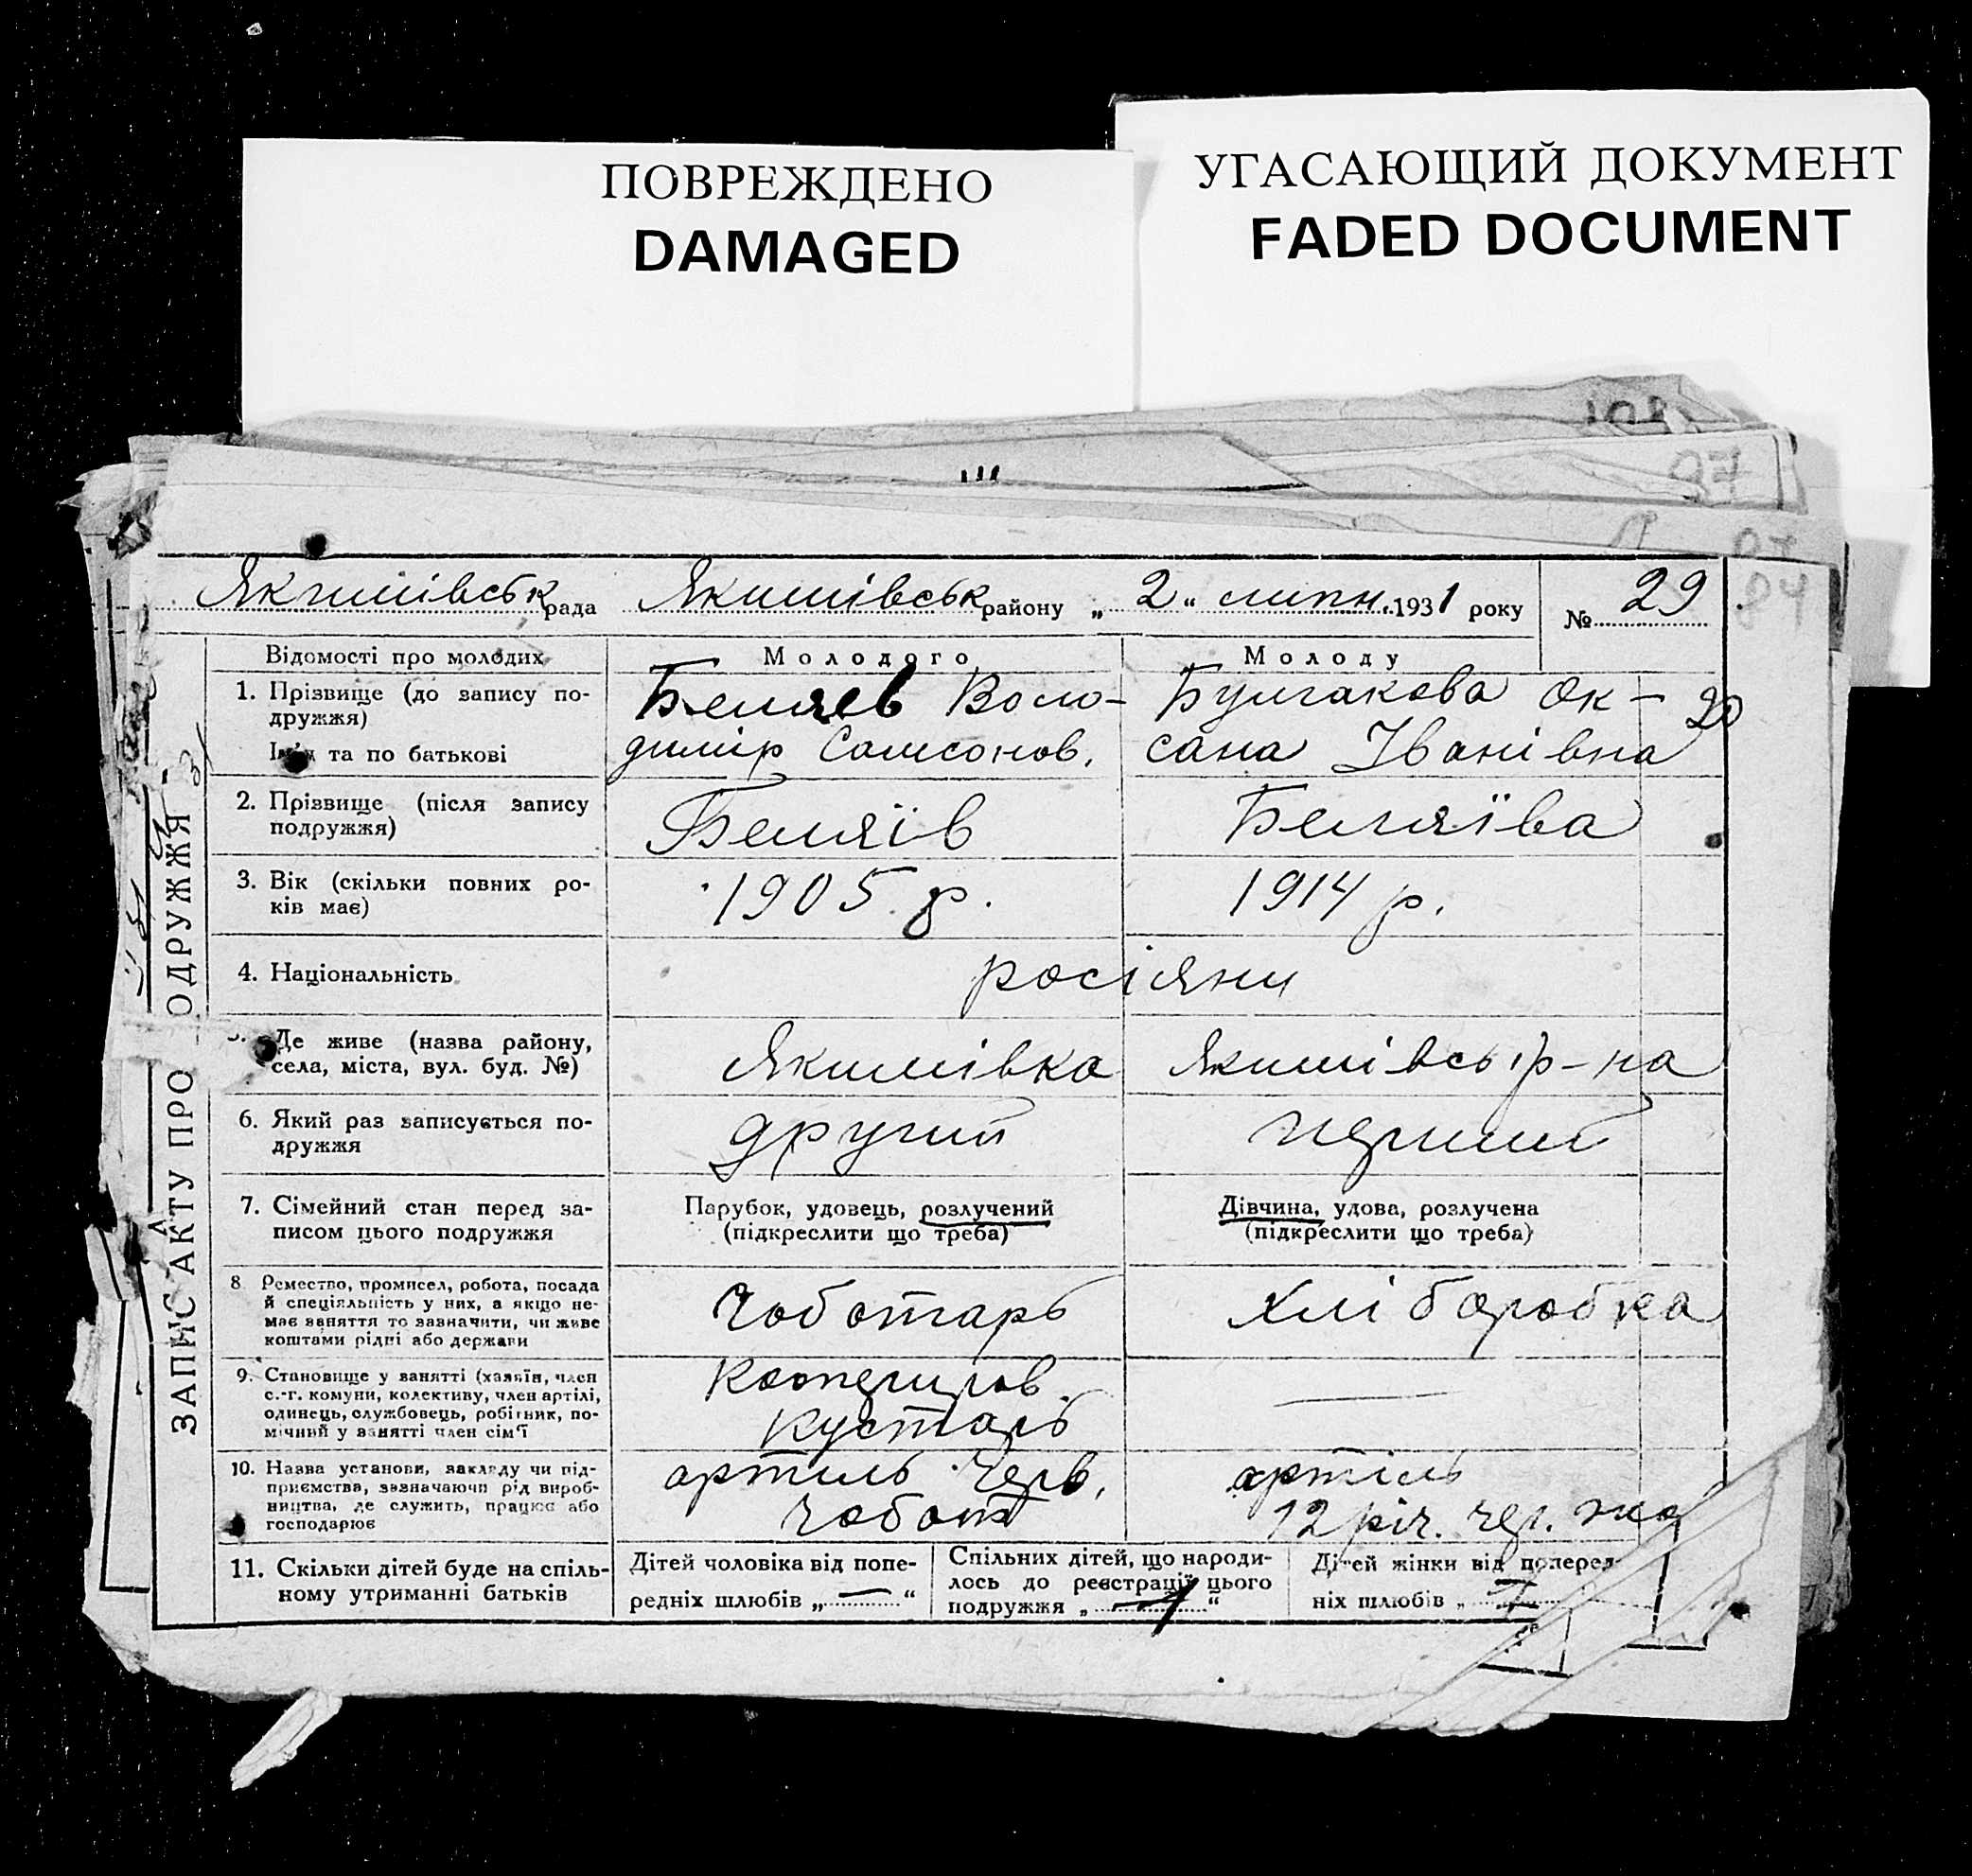 ПОВРЕЖДЕНО
DAMAGED
УГАСАЮЩИЙ ДОКУМЕНТ
FADED DOCUMENT
108
97
87
84
Якимівськ рада Якимівськ району „ 2 “ липн. 1931 року № 29
ЗАПИС АКТУ ПРО ОДРУЖЖЯ
Відомості про молодих
Молодого
Молоду
1. Прізвище (до запису по-
дружжя)
Ім'я та по батькові
Беляев Воло-
димір Самсонов.
Булгакова Ок-
сана Іванівна
20
2. Прізвище (після запису
подружжя)
Беляїв
Беляїва
3. Вік (скільки повних ро-
ків має)
1905 р.
1914 р.
4. Національність
росіяни
Де живе (назва району,
села, міста, вул. буд. №)
Якимівка Якимівсь р-на
6. Який раз записується по-
дружжя
другий
перший
7. Сімейний стан перед за-
писом цього подружжя
Парубок, удовець, розлучений
(підкреслити що треба)
Дівчина, удова, розлучена
(підкреслити що треба)
8 Ремество, промисел, робота, посада
й спеціяльність у них, а якщо не-
має заняття то зазначити, чи живе
коштами рідні або держави
Чоботарь
Хліборобка
9. Становище у занятті (хазяїн, член
с.-г. комуни, колективу, член артілі,
одинець, службовець, робітник, по-
мічний у занятті член сім'ї
Коопериров.
кустарь
10. Назва установи, закладу чи під-
приємства, зазначаючи рід вироб-
ництва, де служить, працює або
господарює
артиль Черв.
чобот
артіль
12 річ. чер.
11. Скільки дітей буде на спіль-
ному утриманні батьків
Дітей чоловіка від попе-
редніх шлюбів „ — “
Спільних дітей, що народи-
лось до реєстрації цього
подружжя „ 1 “
Дітей жінки від поперед-
ніх шлюбів „